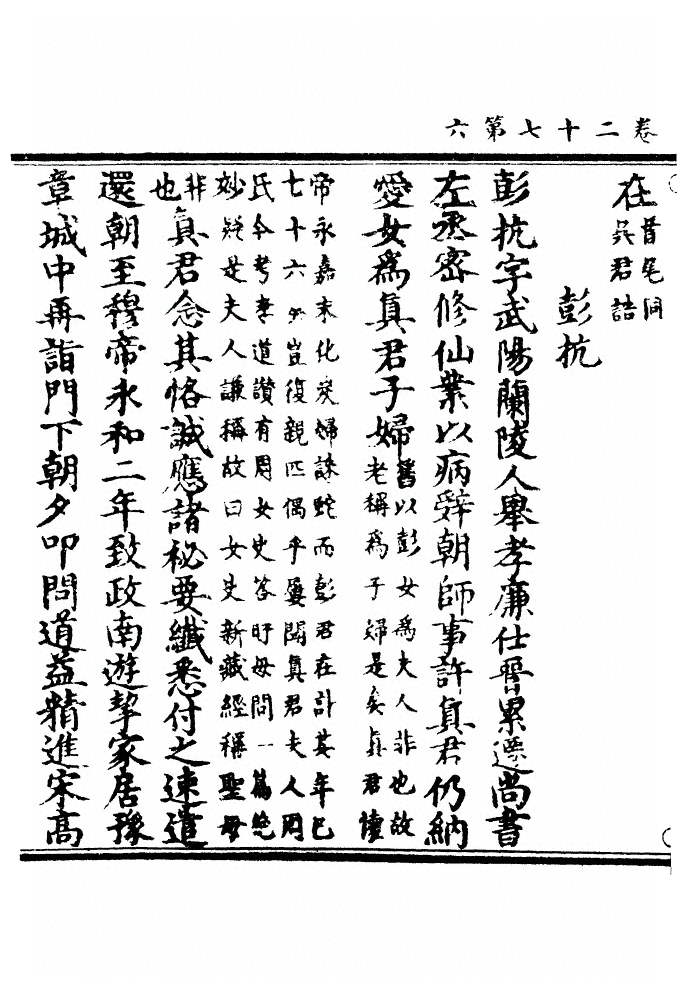 卷二十七第六
在
吳君詰
彭抗
彭抗字武陽蘭陵人舉孝廉仕晉累遷尚書
左丞密修仙業以病辭朝師事許真君仍納
愛女為真君子婦舊以彭女為夫人非也故
老稱為子婦是矣真君懷
帝永嘉末化炭婦誅蛇而彭君在計其年已
七十六豈復親匹偶乎屢聞真君夫人周
氏今考孝道讚有周女史答盱母問一篇絕
妙疑是夫人謙稱故曰女史新藏經稱聖母
非也真君念其恪誠應諸秘要纖悉付之速遣
還朝至穆帝永和二年致政南遊挈家居豫
章城中再詣門下朝夕叩問道益精進宋高